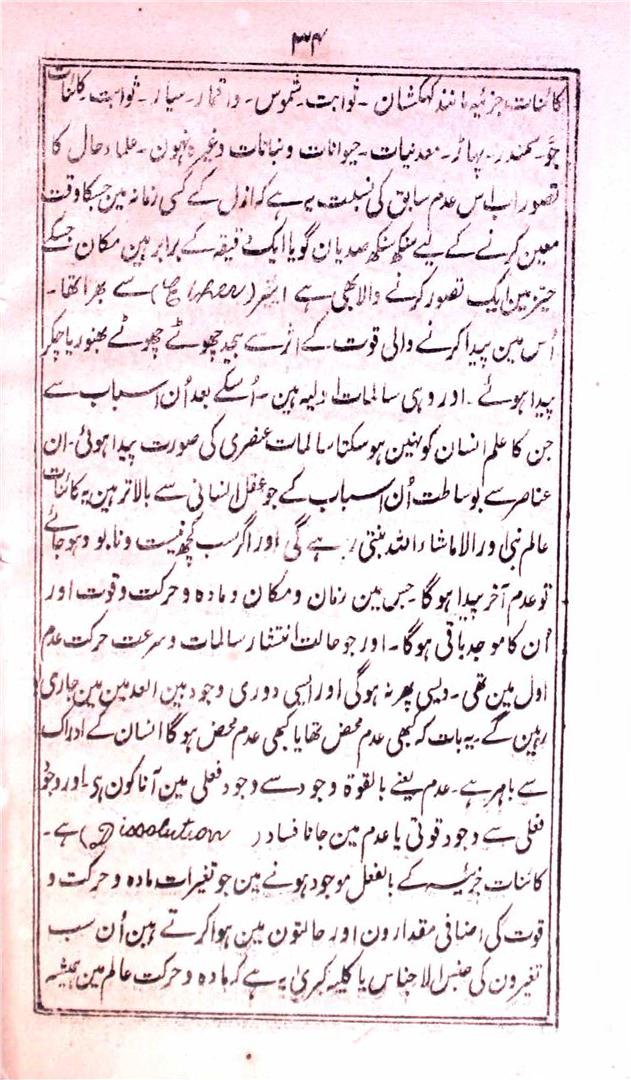 ۳۴
کائنات جزئیہ مانند کہکشان ۔ ثوابت ۔ شموس ۔ و اقمار ۔ سیار ۔ ثوابت کائنات
جَو ۔ سمندر ۔ پہاڑ ۔ معدنیات ۔ حیوانات و نباتات وغیرہ نہون ۔ علماء حال کا
تصور اب اس عدم سابق کی نسبت یہ ہے کہ ازل کے کسی زمانہ مین جسکا وقت
معین کرنے کے لیے سنکھ سنکھ صدیان گویا ایک دقیقہ کے برابر ہین مکان جسکے
حیز مین ایک تصور کرنے والا بھی ہے ایتھر (Ether) سے بھرا تھا ۔
اُس مین پیدا کرنے والی قوت کے اثر سے بیحد چھوٹے چھوٹے بھنور یا چکر
پیدا ہوئے ۔ اور وہی سالمات اولیہ ہین ۔ اُسکے بعد اُن اسباب سے
جن کا علم انسان کو نہین ہو سکتا سالمات عنصری کی صورت پیدا ہوئی ۔ ان
عناصر سے بوساطت اُن اسباب کے جو عقل انسانی سے بالاتر ہین یہ کائنات
عالم بنی اور الا ماشاء اللہ بنتی رہے گی اور اگر سب کچھ نیست و نابود ہو جائے
تو عدم آخر پیدا ہوگا جس مین زمان و مکان و مادہ و حرکت و قوت اور
اُن کا موجد باقی ہوگا ۔ اور جو حالت انتشار سالمات و سرعت حرکت عدم
اول مین تھی ۔ ویسی پھر نہ ہوگی اور ایسی دوری وجود بین العدمین مین جاری
رہین گے ۔ یہ بات کہ کبھی عدم محض تھا یا کبھی عدم محض ہوگا انسان کے ادراک
سے باہر ہے ۔ عدم یعنے بالقوة وجود سے وجود فعلی مین آنا کون ہے اور وجود
فعلی سے وجود قوتی یا عدم مین جانا فساد (Dissolution) ہے ۔
کائنات جزئیہ کے بالفعل موجود ہونے مین جو تغیرات مادہ و حرکت و
قوت کی اضافی مقدارون اور حالتون مین ہوا کرتے ہین اُن سب
تغیرون کی جنس الاجناس یا کلیہ کبریٰ یہ ہے کہ مادہ و حرکت عالم مین ہمیشہ